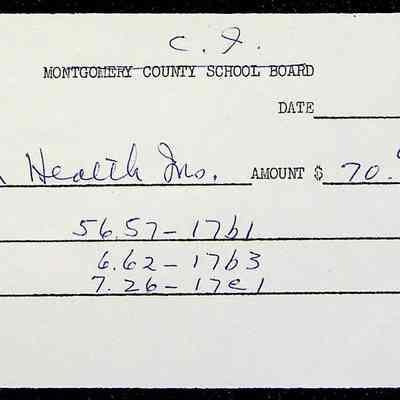 C. I.
MONTGOMERY COUNTY SCHOOL BOARD
DATE
Health Ins. AMOUNT $ 70.
56.57 - 17b1
6.62 - 17b3
7.26 - 17e1